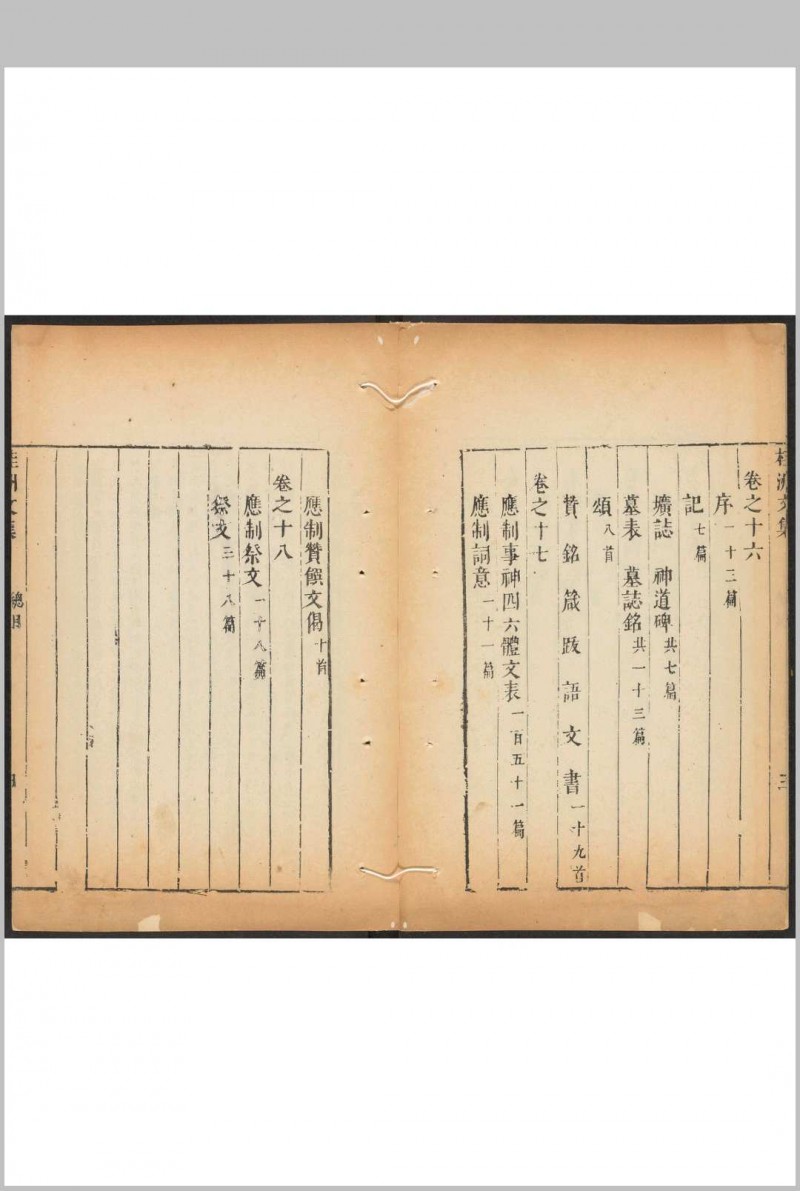 桂洲文集
三
卷之十六
序一十三篇
記七篇
壙誌 神道碑共七篇
墓表 墓誌銘共一十三篇
頌八首
贊銘箴跋語文書一十九首
卷之十七
應制事神四六體文表一百五十一篇
應制詞意一十一篇
應制贊饌文偈十首
卷之十八
應制祭文一十八篇
祭文三十八篇
桂洲文集
總目